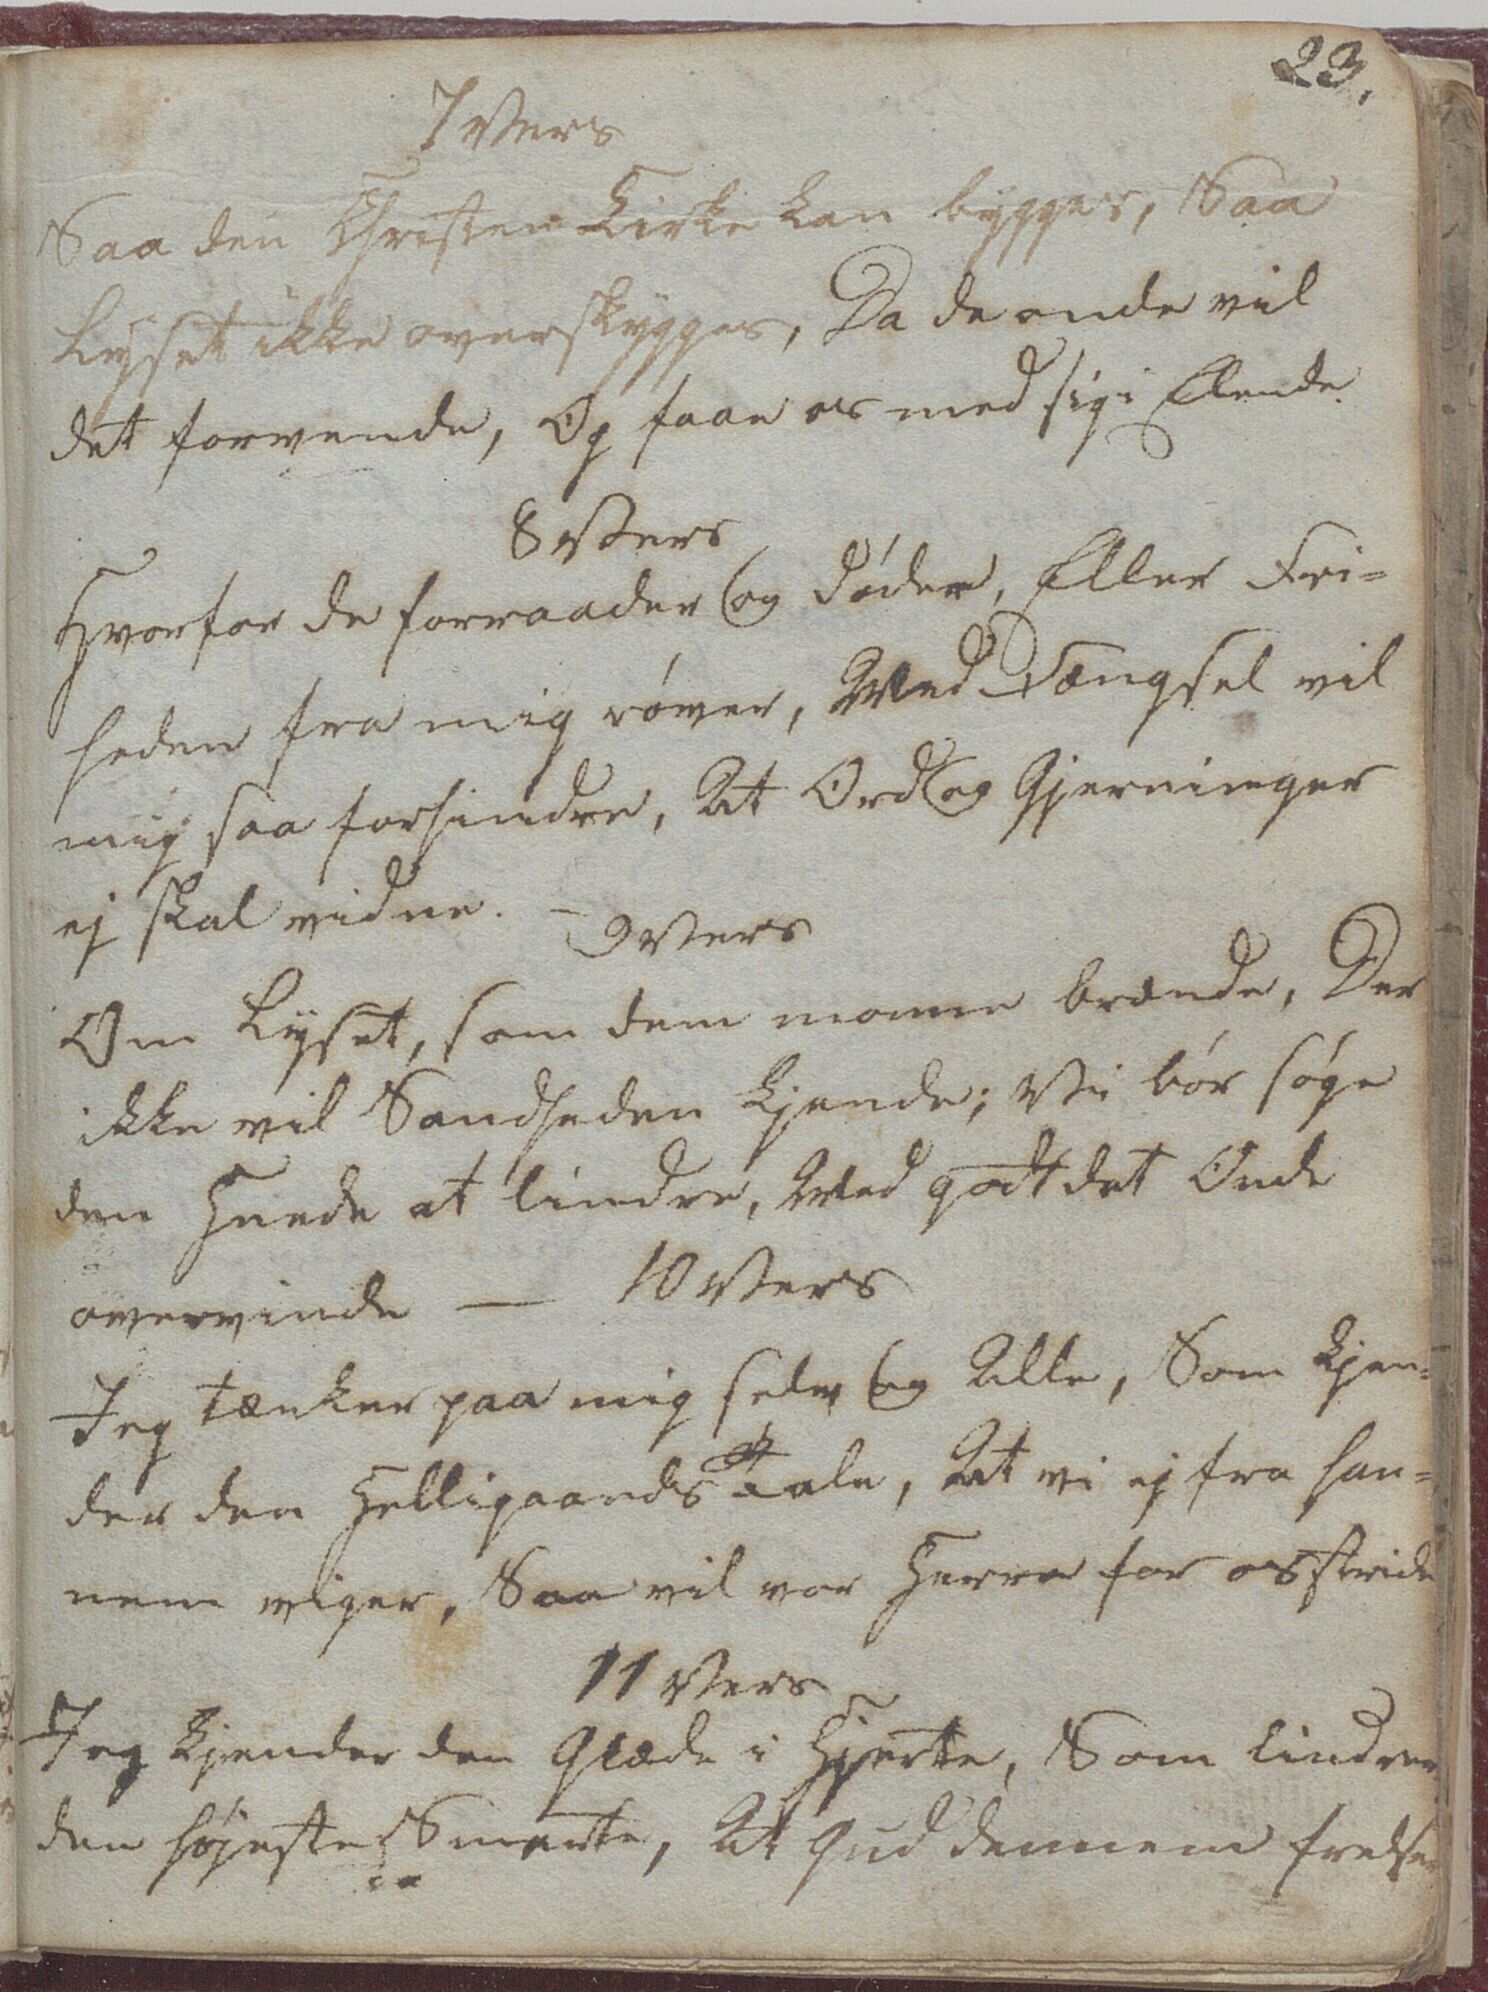 23.
7 Vers
Saa den Christen Kirke kan bygges, Saa
Lyset ikke overskygges, Da de onde vil
det forvende, Og faae os med sig i Elende.
8 Vers
Hvorfor de forraader og døder, Eller Fri=
heden fra mig røver, Med Fængsel vil
mig saa forhindre, At Ord og Gjerninger
ej skal vidne. –
9 Vers
Om Lyset, som dem monne brænde, Der
ikke vil Sandheden kjende; Vi bør søge
den Hede at lindre, Med godt det Onde
overvinde —
10 Vers
Jeg tænker paa mig selv og Alle, Som kjen=
der den Helligaands Tale, At vi ej fra han=
nem viger, Saa vil vor Herre for os stride
11 Vers
Jeg kjender den Glæde i Hjerte, Som lindrer
den højeste Smerte, At Gud dennem frelser